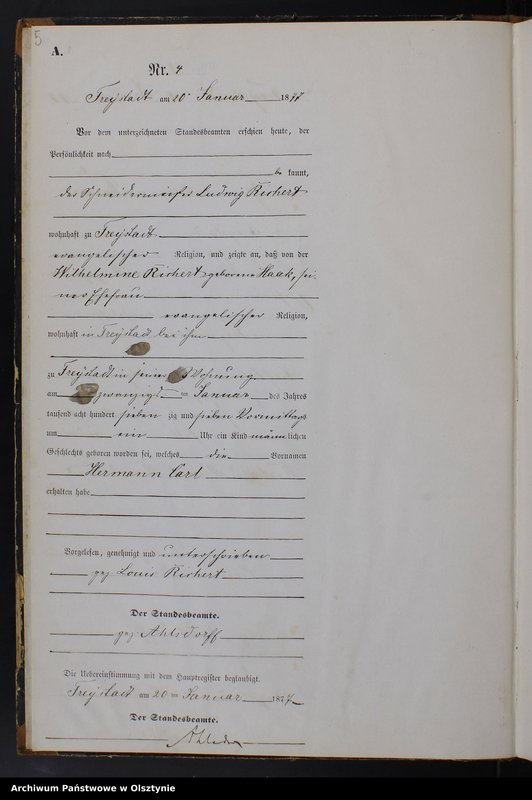 5
A.
Nr. 4
Freystadt am 20 Januar 1877
Vor dem unterzeichneten Standesbeamten erschien heute, der
Persönlichkeit nach
be kannt,
der Schneidermeister Ludwig Richert
wohnhaft zu Freystadt
evangelischer Religion, und zeigte an, daß von der
Wilhelmine Richert geborene Haak, sei-
ner Ehefrau
evangelischer Religion,
wohnhaft in Freystadt bei ihm
zu Freystadt in seiner Wohnung
am zwanzigsten Januar des Jahres
tausend acht hundert sieben zig und sieben Vormittags
um ein Uhr ein Kind männlichen
Geschlechts geboren worden sei, welches die Vornamen
Hermann Carl
erhalten habe
Vorgelesen, genehmigt und unterschrieben
gez. Louis Richert
Der Standesbeamte.
gez. Ahlsdorff
Die Uebereinstimmung mit dem Hauptregister beglaubigt.
Freystadt am 20 ten Januar 1877
Der Standesbeamte.
Archiwum Państwowe w Olsztynie